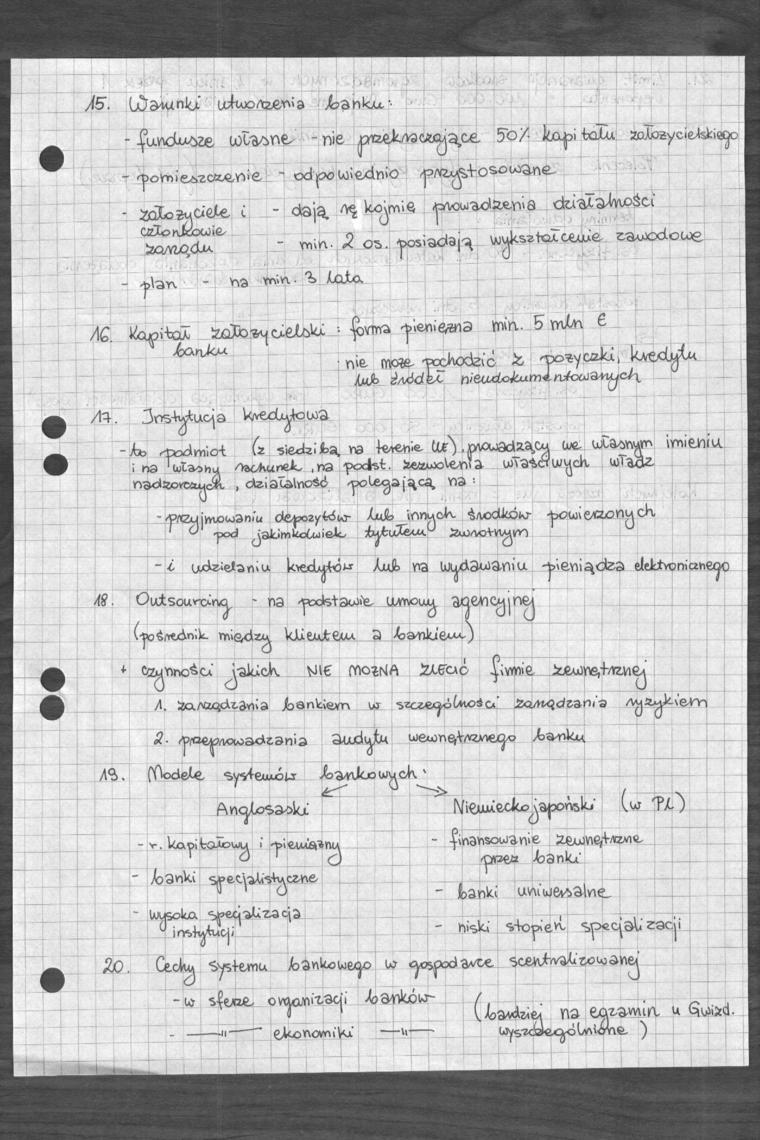 15. Warunki utworzenia banku:
- fundusze własne - nie przekraczające 50% kapitału założycielskiego
- pomieszczenie - odpowiednio przystosowane
- założyciele i - dają rękojmię prowadzenia działalności
członkowie
zarządu - min. 2 os. posiadają wykształcenie zawodowe
- plan - na min. 3 lata
16. Kapitał założycielski : forma pieniężna min. 5 mln €
banku
: nie może pochodzić z pożyczki, kredytu
lub źródeł nieudokumentowanych
17. Instytucja kredytowa
- to podmiot (z siedzibą na terenie UE), prowadzący we własnym imieniu
i na własny rachunek, na podst. zezwolenia właściwych władz
nadzorczych, działalność polegającą na:
- przyjmowaniu depozytów lub innych środków powierzonych
pod jakimkolwiek tytułem zwrotnym
- i udzielaniu kredytów lub na wydawaniu pieniądza elektronicznego
18. Outsourcing - na podstawie umowy agencyjnej
(pośrednik między klientem a bankiem)
+ czynności jakich NIE MOŻNA ZLECIĆ firmie zewnętrznej
1. zarządzania bankiem w szczególności zarządzania ryzykiem
2. przeprowadzania audytu wewnętrznego banku
19. Modele systemów bankowych:
Anglosaski Niemieckojapoński (w PL)
- r. kapitałowy i pieniężny - finansowanie zewnętrzne
przez banki
- banki specjalistyczne - banki uniwersalne
- wysoka specjalizacja - niski stopień specjalizacji
instytucji
20. Cechy systemu bankowego w gospodarce scentralizowanej
- w sferze organizacji banków (bardziej na egzamin u Gwizd.
- —"— ekonomiki —"— wyszczególnione)